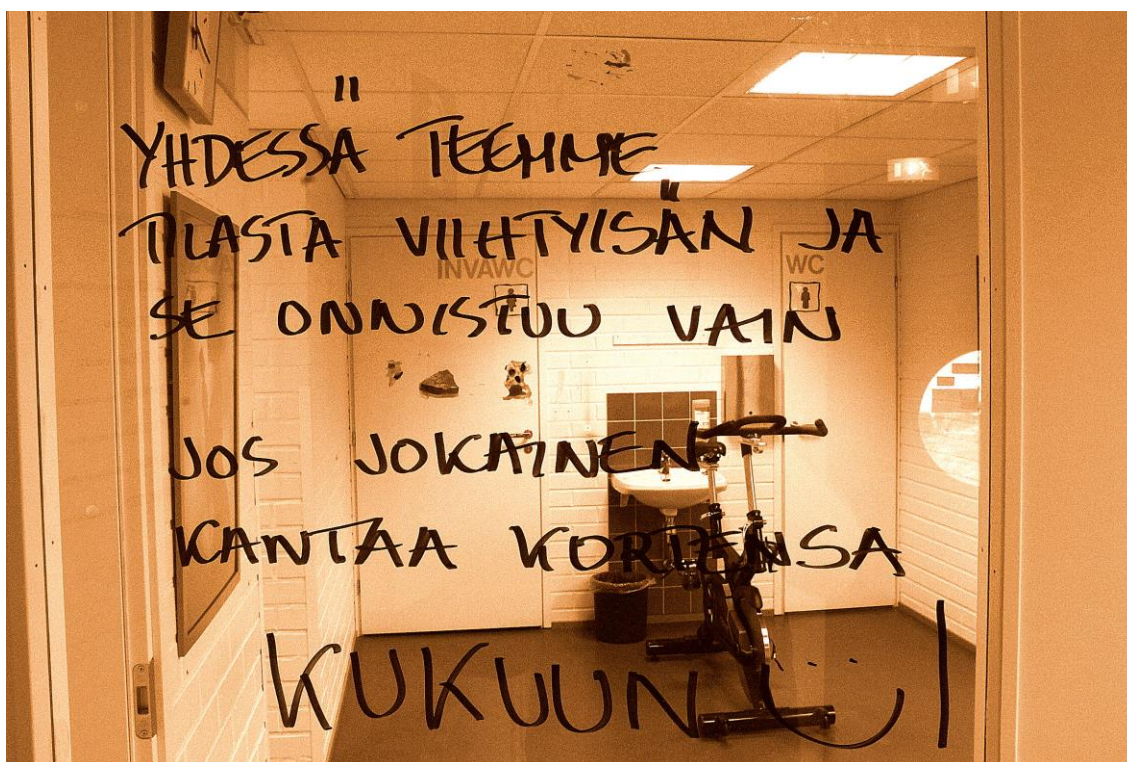 YHDESSÄ TEEMME
TILASTA VIIHTYISÄN JA
INVAWC
WC
SE ONNISTUU VAIN
JOS JOKAINEN
KANTAA KORTENSA
KUKUUN :)